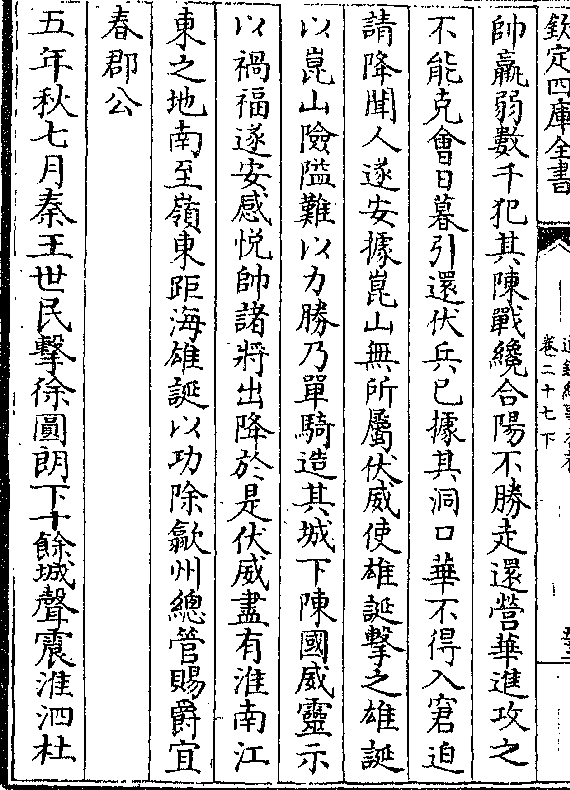 欽定四庫全書
卷二十七下
帥羸弱數千犯其陳戰纔合陽不勝走還營華進攻之
不能克會日暮引還伏兵已據其洞口華不得入窘迫
請降聞人遂安據崑山無所屬伏威使雄誕擊之雄誕
以崑山險隘難以力勝乃單騎造其城下陳國威靈示
以禍福遂安感悅帥諸將出降於是伏威盡有淮南江
東之地南至嶺東距海雄誕以功除歙州總管賜爵宜
春郡公
五年秋七月秦王世民擊徐圓朗下十餘城聲震淮泗杜